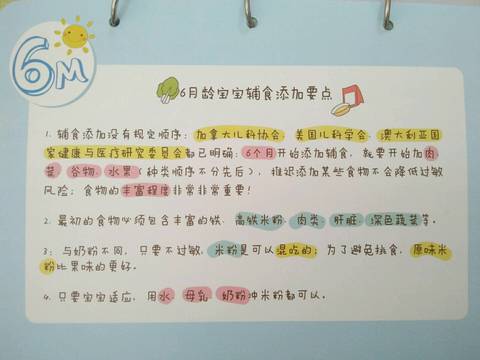 6M
6月龄宝宝辅食添加要点
1. 辅食添加没有规定顺序: 加拿大儿科协会、美国儿科学会、澳大利亚国
家健康与医疗研究委员会都已明确: 6个月开始添加辅食, 就要开始加肉
菜 谷物 水果 (种类顺序不分先后), 推迟添加某些食物不会降低过敏
风险; 食物的丰富程度非常非常重要!
2. 最初的食物必须包含丰富的铁. 高铁米粉, 肉类, 肝脏, 深色蔬菜等。
3: 与奶粉不同, 只要不过敏, 米粉是可以混吃的; 为了避免挑食, 原味米
粉比果味的更好。
4. 只要宝宝适应, 用水 母乳 奶粉冲米粉都可以。